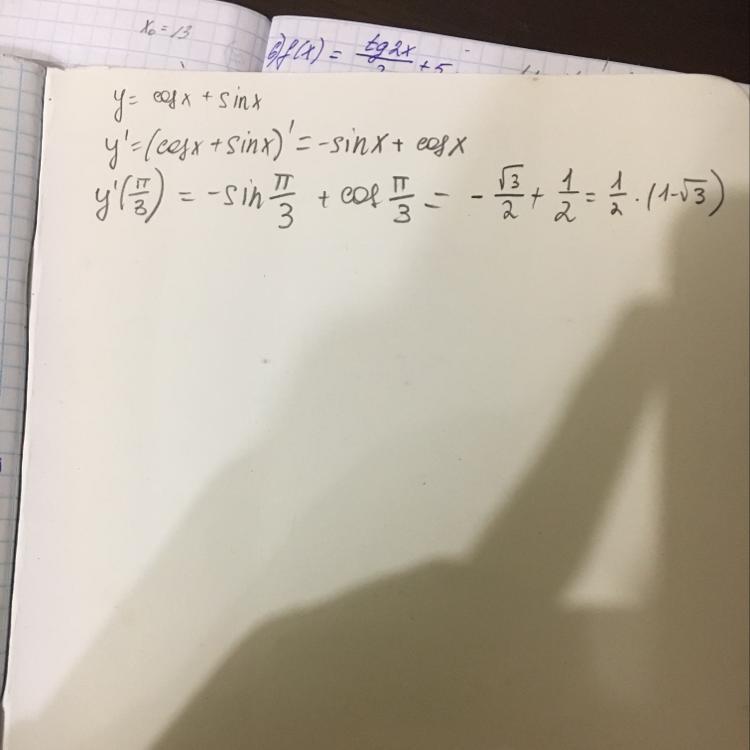 x₀ = 13
б) f(x) = tg2x/ + 5
y = cosx + sinx
y' = (cosx + sinx)' = -sinx + cosx
y'(π/3) = -sin π/3 + cos π/3 = - √3/2 + 1/2 = 1/2 · (1-√3)